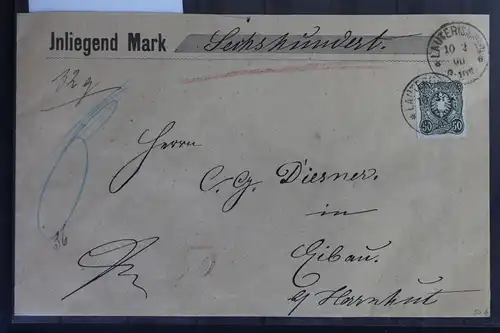 Inliegend Mark Sechshundert.
10 2
90
32 g
50 50
Herrn
C. G. Diesner.
in
36
Eibau.
Herrnhut